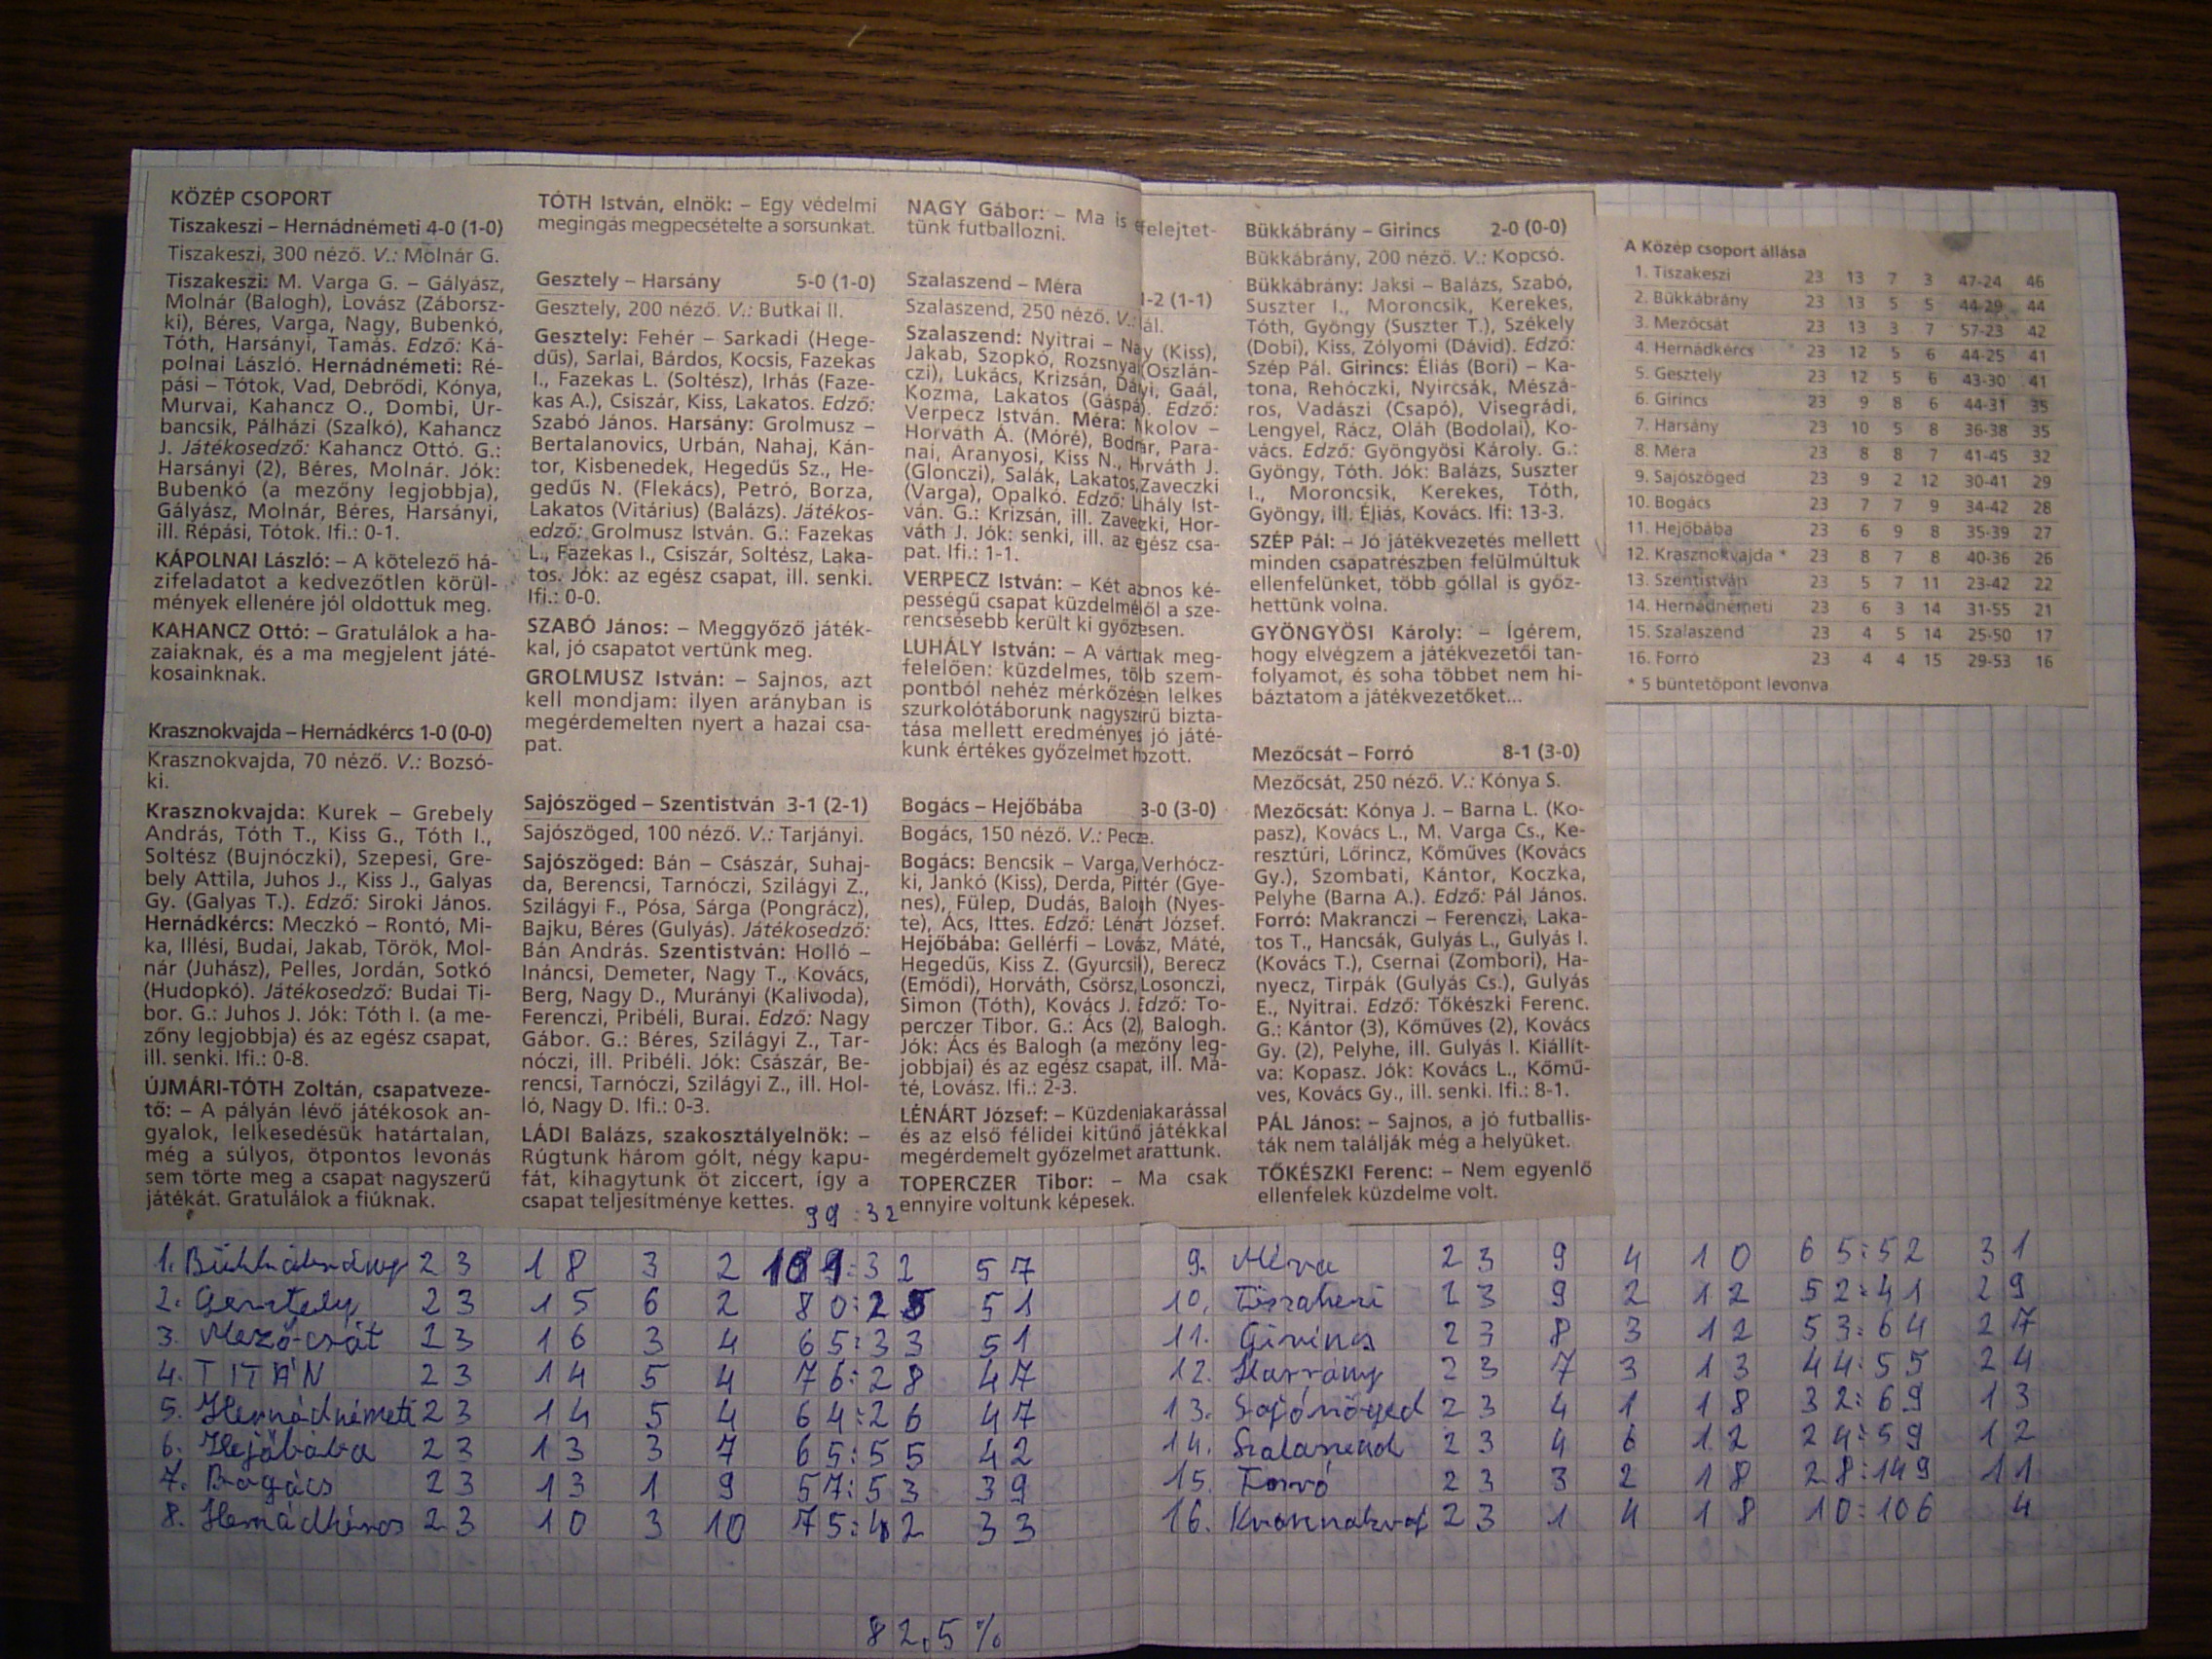 KÖZÉP CSOPORT
Tiszakeszi – Hernádnémeti 4-0 (1-0)
Tiszakeszi, 300 néző. V.: Molnár G.
Tiszakeszi: M. Varga G. – Gályász,
Molnár (Balogh), Lovász (Záborsz-
ki), Béres, Varga, Nagy, Bubenkó,
Tóth, Harsányi, Tamás. Edző: Ká-
polnai László. Hernádnémeti: Ré-
pási – Tótok, Vad, Debrődi, Kónya,
Murvai, Kahancz O., Dombi, Ur-
bancsik, Pálházi (Szalkó), Kahancz
J. Játékosedző: Kahancz Ottó. G.:
Harsányi (2), Béres, Molnár. Jók:
Bubenkó (a mezőny legjobbja),
Gályász, Molnár, Béres, Harsányi,
ill. Répási, Tótok. Ifi.: 0-1.
KÁPOLNAI László: – A kötelező há-
zifeladatot a kedvezőtlen körül-
mények ellenére jól oldottuk meg.
KAHANCZ Ottó: – Gratulálok a ha-
zaiaknak, és a ma megjelent játé-
kosainknak.
Krasznokvajda – Hernádkércs 1-0 (0-0)
Krasznokvajda, 70 néző. V.: Bozsó-
ki.
Krasznokvajda: Kurek – Grebely
András, Tóth T., Kiss G., Tóth I.,
Soltész (Bujnóczki), Szepesi, Gre-
bely Attila, Juhos J., Kiss J., Galyas
Gy. (Galyas T.). Edző: Siroki János.
Hernádkércs: Meczkó – Rontó, Mi-
ka, Illési, Budai, Jakab, Török, Mol-
nár (Juhász), Pelles, Jordán, Sotkó
(Hudopkó). Játékosedző: Budai Ti-
bor. G.: Juhos J. Jók: Tóth I. (a me-
zőny legjobbja) és az egész csapat,
ill. senki. Ifi.: 0-8.
ÚJMÁRI-TÓTH Zoltán, csapatveze-
tő: – A pályán lévő játékosok an-
gyalok, lelkesedésük határtalan,
még a súlyos, ötpontos levonás
sem törte meg a csapat nagyszerű
játékát. Gratulálok a fiúknak.
TÓTH István, elnök: – Egy védelmi
megingás megpecsételte a sorsunkat.
Gesztely – Harsány 5-0 (1-0)
Gesztely, 200 néző. V.: Butkai II.
Gesztely: Fehér – Sarkadi (Hege-
dűs), Sarlai, Bárdos, Kocsis, Fazekas
I., Fazekas L. (Soltész), Irhás (Faze-
kas A.), Csiszár, Kiss, Lakatos. Edző:
Szabó János. Harsány: Grolmusz –
Bertalanovics, Urbán, Nahaj, Kán-
tor, Kisbenedek, Hegedűs Sz., He-
gedűs N. (Flekács), Petró, Borza,
Lakatos (Vitárius) (Balázs). Játékos-
edző: Grolmusz István. G.: Fazekas
L., Fazekas I., Csiszár, Soltész, Laka-
tos. Jók: az egész csapat, ill. senki.
Ifi.: 0-0.
SZABÓ János: – Meggyőző játék-
kal, jó csapatot vertünk meg.
GROLMUSZ István: – Sajnos, azt
kell mondjam: ilyen arányban is
megérdemelten nyert a hazai csa-
pat.
Sajószöged – Szentistván 3-1 (2-1)
Sajószöged, 100 néző. V.: Tarjányi.
Sajószöged: Bán – Császár, Suhaj-
da, Berencsi, Tarnóczi, Szilágyi Z.,
Szilágyi F., Pósa, Sárga (Pongrácz),
Bajku, Béres (Gulyás). Játékosedző:
Bán András. Szentistván: Holló –
Ináncsi, Demeter, Nagy T., Kovács,
Berg, Nagy D., Murányi (Kalivoda),
Ferenczi, Pribéli, Burai. Edző: Nagy
Gábor. G.: Béres, Szilágyi Z., Tar-
nóczi, ill. Pribéli. Jók: Császár, Be-
rencsi, Tarnóczi, Szilágyi Z., ill. Hol-
ló, Nagy D. Ifi.: 0-3.
LÁDI Balázs, szakosztályelnök: –
Rúgtunk három gólt, négy kapu-
fát, kihagytunk öt ziccert, így a
csapat teljesítménye kettes.
NAGY Gábor: – Ma is elfelejtet-
tünk futballozni.
Szalaszend – Méra 1-2 (1-1)
Szalaszend, 250 néző. V.: ál.
Szalaszend: Nyitrai – Nagy (Kiss),
Jakab, Szopkó, Rozsnyai (Oszlán-
czi), Lukács, Krizsán, Dányi, Gaál,
Kozma, Lakatos (Gáspár). Edző:
Verpecz István. Méra: Nikolov –
Horváth Á. (Móré), Bodnár, Para-
nai, Aranyosi, Kiss N., Horváth J.
(Glonczi), Salák, Lakatos, Zaveczki
(Varga), Opalkó. Edző: Luhály Ist-
ván. G.: Krizsán, ill. Zaveczki, Hor-
váth J. Jók: senki, ill. az egész csa-
pat. Ifi.: 1-1.
VERPECZ István: – Két azonos ké-
pességű csapat küzdelméből a sze-
rencsésebb került ki győztesen.
LUHÁLY István: – A vártnak meg-
felelően: küzdelmes, több szem-
pontból nehéz mérkőzésen lelkes
szurkolótáborunk nagyszerű bizta-
tása mellett eredményes jó játé-
kunk értékes győzelmet hozott.
Bogács – Hejőbába 3-0 (3-0)
Bogács, 150 néző. V.: Pecze.
Bogács: Bencsik – Varga, Verhócz-
ki, Jankó (Kiss), Derda, Pintér (Gye-
nes), Fülep, Dudás, Balogh (Nyes-
te), Ács, Ittes. Edző: Lénárt József.
Hejőbába: Gellérfi – Lovász, Máté,
Hegedűs, Kiss Z. (Gyurcsik), Berecz
(Emődi), Horváth, Csörsz, Losonczi,
Simon (Tóth), Kovács J. Edző: To-
perczer Tibor. G.: Ács (2), Balogh.
Jók: Ács és Balogh (a mezőny leg-
jobbjai) és az egész csapat, ill. Má-
té, Lovász. Ifi.: 2-3.
LÉNÁRT József: – Küzdeniakarással
és az első félidei kitűnő játékkal
megérdemelt győzelmet arattunk.
TOPERCZER Tibor: – Ma csak
ennyire voltunk képesek.
Bükkábrány – Girincs 2-0 (0-0)
Bükkábrány, 200 néző. V.: Kopcsó.
Bükkábrány: Jaksi – Balázs, Szabó,
Suszter I., Moroncsik, Kerekes,
Tóth, Gyöngy (Suszter T.), Székely
(Dobi), Kiss, Zólyomi (Dávid). Edző:
Szép Pál. Girincs: Éliás (Bori) – Ka-
tona, Rehóczki, Nyircsák, Mészá-
ros, Vadászi (Csapó), Visegrádi,
Lengyel, Rácz, Oláh (Bodolai), Ko-
vács. Edző: Gyöngyösi Károly. G.:
Gyöngy, Tóth. Jók: Balázs, Suszter
I., Moroncsik, Kerekes, Tóth,
Gyöngy, ill. Éliás, Kovács. Ifi: 13-3.
SZÉP Pál: – Jó játékvezetés mellett
minden csapatrészben felülmúltuk
ellenfelünket, több góllal is győz-
hettünk volna.
GYÖNGYÖSI Károly: – Ígérem,
hogy elvégzem a játékvezetői tan-
folyamot, és soha többet nem hi-
báztatom a játékvezetőket...
Mezőcsát – Forró 8-1 (3-0)
Mezőcsát, 250 néző. V.: Kónya S.
Mezőcsát: Kónya J. – Barna L. (Ko-
pasz), Kovács L., M. Varga Cs., Ke-
resztúri, Lőrincz, Kőműves (Kovács
Gy.), Szombati, Kántor, Koczka,
Pelyhe (Barna A.). Edző: Pál János.
Forró: Makranczi – Ferenczi, Laka-
tos T., Hancsák, Gulyás L., Gulyás I.
(Kovács T.), Csernai (Zombori), Ha-
nyecz, Tirpák (Gulyás Cs.), Gulyás
E., Nyitrai. Edző: Tőkészki Ferenc.
G.: Kántor (3), Kőműves (2), Kovács
Gy. (2), Pelyhe, ill. Gulyás I. Kiállít-
va: Kopasz. Jók: Kovács L., Kőmű-
ves, Kovács Gy., ill. senki. Ifi.: 8-1.
PÁL János: – Sajnos, a jó futballis-
ták nem találják még a helyüket.
TŐKÉSZKI Ferenc: – Nem egyenlő
ellenfelek küzdelme volt.
A Közép csoport állása
1. Tiszakeszi 23 13 7 3 47-24 46
2. Bükkábrány 23 13 5 5 44-29 44
3. Mezőcsát 23 13 3 7 57-23 42
4. Hernádkércs 23 12 5 6 44-25 41
5. Gesztely 23 12 5 6 43-30 41
6. Girincs 23 9 8 6 44-31 35
7. Harsány 23 10 5 8 36-38 35
8. Méra 23 8 8 7 41-45 32
9. Sajószöged 23 9 2 12 30-41 29
10. Bogács 23 7 7 9 34-42 28
11. Hejőbába 23 6 9 8 35-39 27
12. Krasznokvajda * 23 8 7 8 40-36 26
13. Szentistván 23 5 7 11 23-42 22
14. Hernádnémeti 23 6 3 14 31-55 21
15. Szalaszend 23 4 5 14 25-50 17
16. Forró 23 4 4 15 29-53 16
* 5 büntetőpont levonva
99:32
1. Bükkábrány 23 18 3 2 :32 57
2. Gesztely 23 15 6 2 80:25 51
3. Mezőcsát 23 16 3 4 65:33 51
4. TITÁN 23 14 5 4 76:28 47
5. Hernádnémeti 23 14 5 4 64:26 47
6. Hejőbába 23 13 3 7 65:55 42
7. Bogács 23 13 1 9 57:53 39
8. Hernádkércs 23 10 3 10 75:42 33
9. Méra 23 9 4 10 65:52 31
10. Tiszakeszi 23 9 2 12 52:41 29
11. Girincs 23 8 3 12 53:64 27
12. Harsány 23 7 3 13 44:55 24
13. Sajószöged 23 4 1 18 32:69 13
14. Szalaszend 23 4 6 12 24:59 12
15. Forró 23 3 2 18 28:149 11
16. 23 1 4 18 10:106 4
82,5%